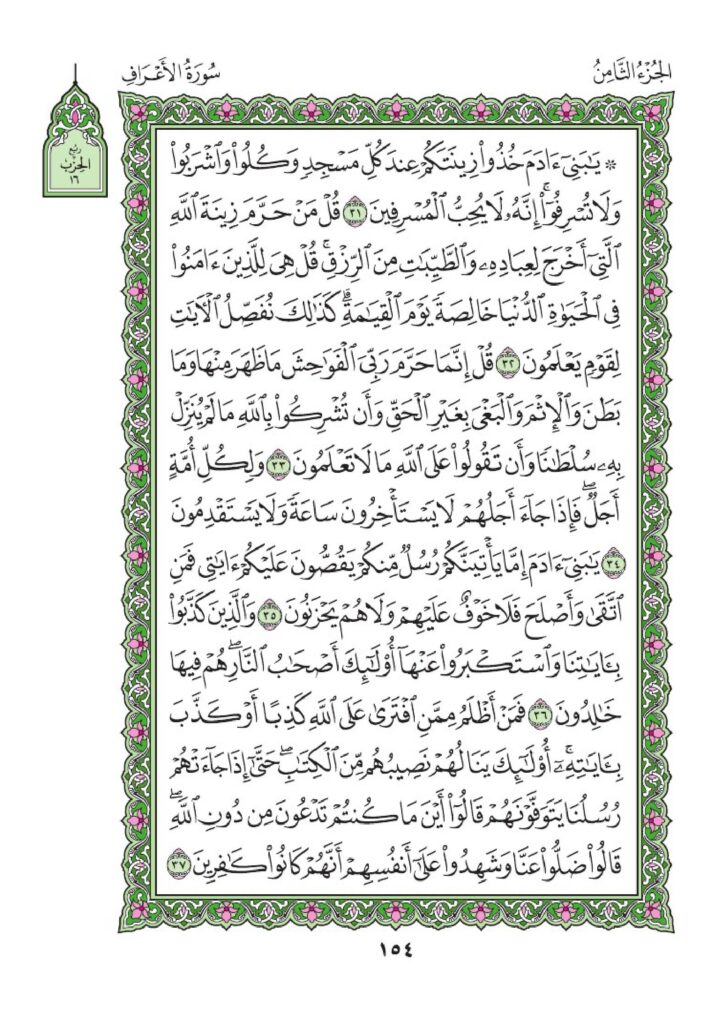 الجُزْءُ الثَّامِنُ
سُورَةُ الأَعْرَافِ
رُبْعُ
الحِزْبِ
١٦
۞ يَٰبَنِىٓ ءَادَمَ خُذُوا۟ زِينَتَكُمْ عِندَ كُلِّ مَسْجِدٍ وَكُلُوا۟ وَٱشْرَبُوا۟
وَلَا تُسْرِفُوٓا۟ۚ إِنَّهُۥ لَا يُحِبُّ ٱلْمُسْرِفِينَ ٣١ قُلْ مَنْ حَرَّمَ زِينَةَ ٱللَّهِ
ٱلَّتِىٓ أَخْرَجَ لِعِبَادِهِۦ وَٱلطَّيِّبَٰتِ مِنَ ٱلرِّزْقِۚ قُلْ هِىَ لِلَّذِينَ ءَامَنُوا۟
فِى ٱلْحَيَوٰةِ ٱلدُّنْيَا خَالِصَةً يَوْمَ ٱلْقِيَٰمَةِۗ كَذَٰلِكَ نُفَصِّلُ ٱلْءَايَٰتِ
لِقَوْمٍ يَعْلَمُونَ ٣٢ قُلْ إِنَّمَا حَرَّمَ رَبِّىَ ٱلْفَوَٰحِشَ مَا ظَهَرَ مِنْهَا وَمَا
بَطَنَ وَٱلْإِثْمَ وَٱلْبَغْىَ بِغَيْرِ ٱلْحَقِّ وَأَن تُشْرِكُوا۟ بِٱللَّهِ مَا لَمْ يُنَزِّلْ
بِهِۦ سُلْطَٰنًا وَأَن تَقُولُوا۟ عَلَى ٱللَّهِ مَا لَا تَعْلَمُونَ ٣٣ وَلِكُلِّ أُمَّةٍ
أَجَلٌۖ فَإِذَا جَآءَ أَجَلُهُمْ لَا يَسْتَأْخِرُونَ سَاعَةً وَلَا يَسْتَقْدِمُونَ
٣٤ يَٰبَنِىٓ ءَادَمَ إِمَّا يَأْتِيَنَّكُمْ رُسُلٌ مِّنكُمْ يَقُصُّونَ عَلَيْكُمْ ءَايَٰتِى فَمَنِ
ٱتَّقَىٰ وَأَصْلَحَ فَلَا خَوْفٌ عَلَيْهِمْ وَلَا هُمْ يَحْزَنُونَ ٣٥ وَٱلَّذِينَ كَذَّبُوا۟
بِـَٔايَٰتِنَا وَٱسْتَكْبَرُوا۟ عَنْهَآ أُو۟لَٰٓئِكَ أَصْحَٰبُ ٱلنَّارِۖ هُمْ فِيهَا
خَٰلِدُونَ ٣٦ فَمَنْ أَظْلَمُ مِمَّنِ ٱفْتَرَىٰ عَلَى ٱللَّهِ كَذِبًا أَوْ كَذَّبَ
بِـَٔايَٰتِهِۦٓۚ أُو۟لَٰٓئِكَ يَنَالُهُمْ نَصِيبُهُم مِّنَ ٱلْكِتَٰبِۖ حَتَّىٰٓ إِذَا جَآءَتْهُمْ
رُسُلُنَا يَتَوَفَّوْنَهُمْ قَالُوٓا۟ أَيْنَ مَا كُنتُمْ تَدْعُونَ مِن دُونِ ٱللَّهِۖ
قَالُوا۟ ضَلُّوا۟ عَنَّا وَشَهِدُوا۟ عَلَىٰٓ أَنفُسِهِمْ أَنَّهُمْ كَانُوا۟ كَٰفِرِينَ ٣٧
١٥٤